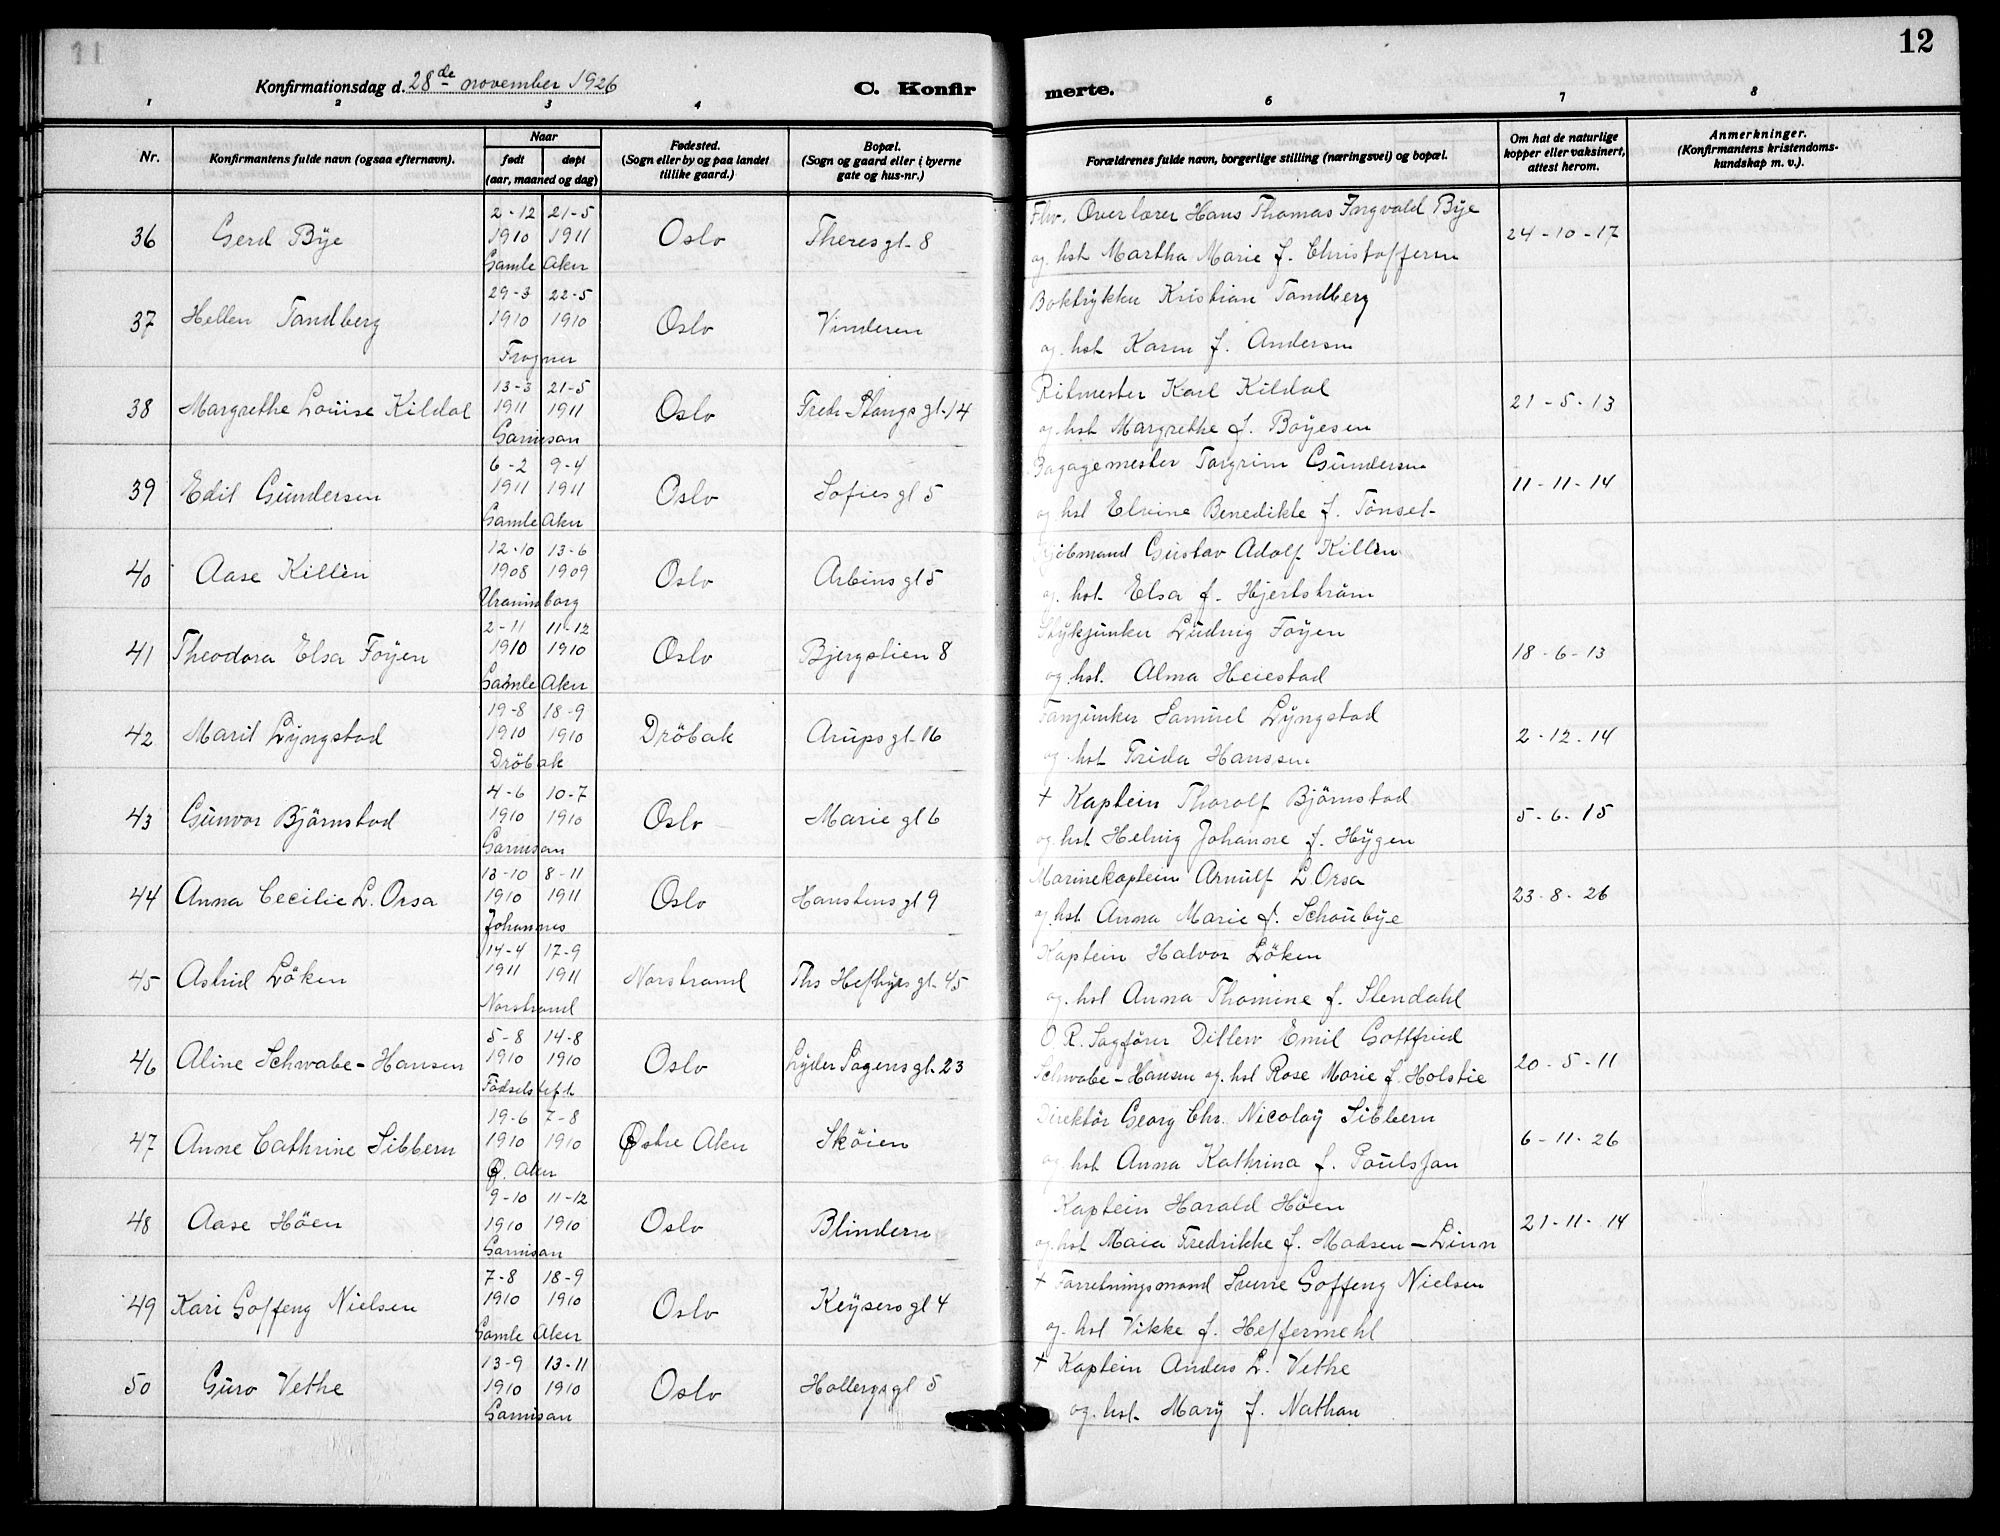 11
12
Konfirmationsdag d. 28de november 1926
C. Konfirmerte.
1 2 3 4 5 6 7 8
Nr.
Konfirmantens fulde navn (ogsaa efternavn).
Naar
født
døpt
(aar, maaned og dag)
Fødested.
(Sogn eller by og paa landet
tillike gaard.)
Bopæl.
(Sogn og gaard eller i byerne
gate og hus-nr.)
Forældrenes fulde navn, borgerlige stilling (næringsvei) og bopæl.
Om hat de naturlige
kopper eller vaksinert,
attest herom.
Anmerkninger.
(Konfirmantens kristendoms-
kundskap m. v.).
36 Gerd Bÿe 2-12 1910 21-5 1911 Gamle Aker Oslo Theresgt. 8
Fhv. Overlærer Hans Thomas Ingvald Bÿe
og hst Martha Marie f. Christoffersen
24-10-17
37 Hellen Tandberg 29-3 1910 22-5 1910 Frogner Oslo Vinderen
Boktrykker Kristian Tandberg
og hst Karen f. Andersen
38 Margrethe Louise Kildal 13-3 1911 21-5 1911 Garnison Oslo Fredr Stangs gt. 14
Ritmester Karl Kildal
og hst Margrethe f. Boÿesen
21-5-13
39 Edit Gundersen 6-2 1911 9-4 1911 Gamle Aker Oslo Sofies gt 5
Bagagemester Torgrim Gundersen
og hst Elvine Benedikte f. Tönset-
11-11-14
40 Aase Killèn 12-10 1908 13-6 1909 Uranienborg Oslo Arbins gt 5
Kjöbmand Gustav Adolf Killèn
og hst. Elsa f. Hjertström
41 Theodora Elsa Foÿen 2-11 1910 11-12 1910 Gamle Aker Oslo Bjergstien 8
Stykjunker Ludvig Foÿen
og hst. Alma Heiestad
18-6-13
42 Marit Lÿngstad 19-8 1910 18-9 1910 Dröbak Dröbak Arups gt. 16
Fanjunker Samuel Lÿngstad
og hst Frida Hanssen
2-12-14
43 Gunvor Björnstad 4-6 1910 10-7 1910 Garnison Oslo Marie gt 6
† Kaptein Thorolf Björnstad
og hst Helvig Johanne f. Hÿgen
5-6-15
44 Anna Cecilie L. Orsa 13-10 1910 8-11 1911 Johannes Oslo Hanstens gt 9
Marinekaptein Arnulf L. Orsa
og hst. Anna Marie f. Schoubÿe
23-8-26
45 Astrid Löken 14-4 1911 17-9 1911 Norstrand Norstrand Ths Heftÿes gt. 45
Kaptein Halvor Löken
og hst Anna Thomine f. Stendahl
46 Aline Schwabe-Hansen 5-8 1910 14-8 1910 Födselstift. Oslo Lÿder Sagens gt. 23
O. R. Sagförer Ditlew Emil Gottfried
Schwabe-Hansen og hst Rose Marie f. Holstie
20-5-11
47 Anne Cathrine Sibbern 19-6 1910 7-8 1910 Ø. Aker Østre Aker Sköien
Direktör Georg Chr. Nicolaÿ Sibbern
og hst Anna Kathrina f. Paulsson
6-11-26
48 Aase Höen 9-10 1910 11-12 1910 Garnison Oslo Blindern
Kaptein Harald Höen
og hst Maia Fredrikke f. Madsen-Linn
21-11-14
49 Kari Goffeng Nielsen 7-8 1910 18-9 1910 Gamle Aker Oslo Keÿsers gt 4
† Forretningsmand Sverre Goffeng Nielsen
og hst Vikke f. Heffermehl
50 Guro Vethe 13-9 1910 13-11 1910 Garnison Oslo Holbergs gt 5
† Kaptein Anders L. Vethe
og hst. Marÿ f. Nathan